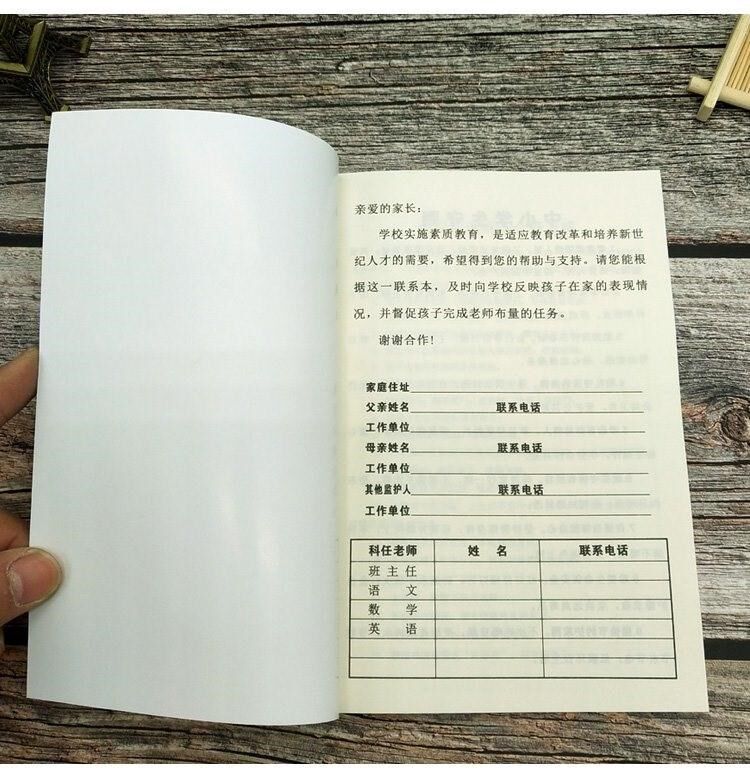 亲爱的家长：
学校实施素质教育，是适应教育改革和培养新世
纪人才的需要，希望得到您的帮助与支持。请您能根
据这一联系本，及时向学校反映孩子在家的表现情
况，并督促孩子完成老师布量的任务。
谢谢合作！
家庭住址
父亲姓名 联系电话
工作单位
母亲姓名 联系电话
工作单位
其他监护人 联系电话
工作单位
科任老师 姓 名 联系电话
班 主 任
语 文
数 学
英 语